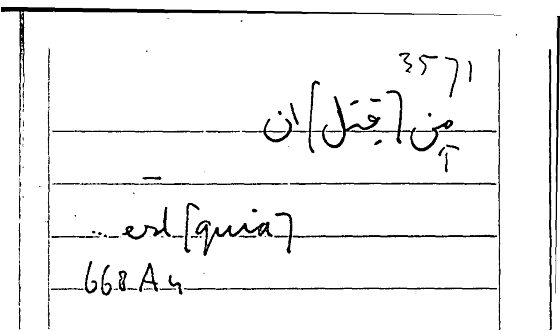 3571
من [قبل] ان
—
... est [quia]
668 A 4